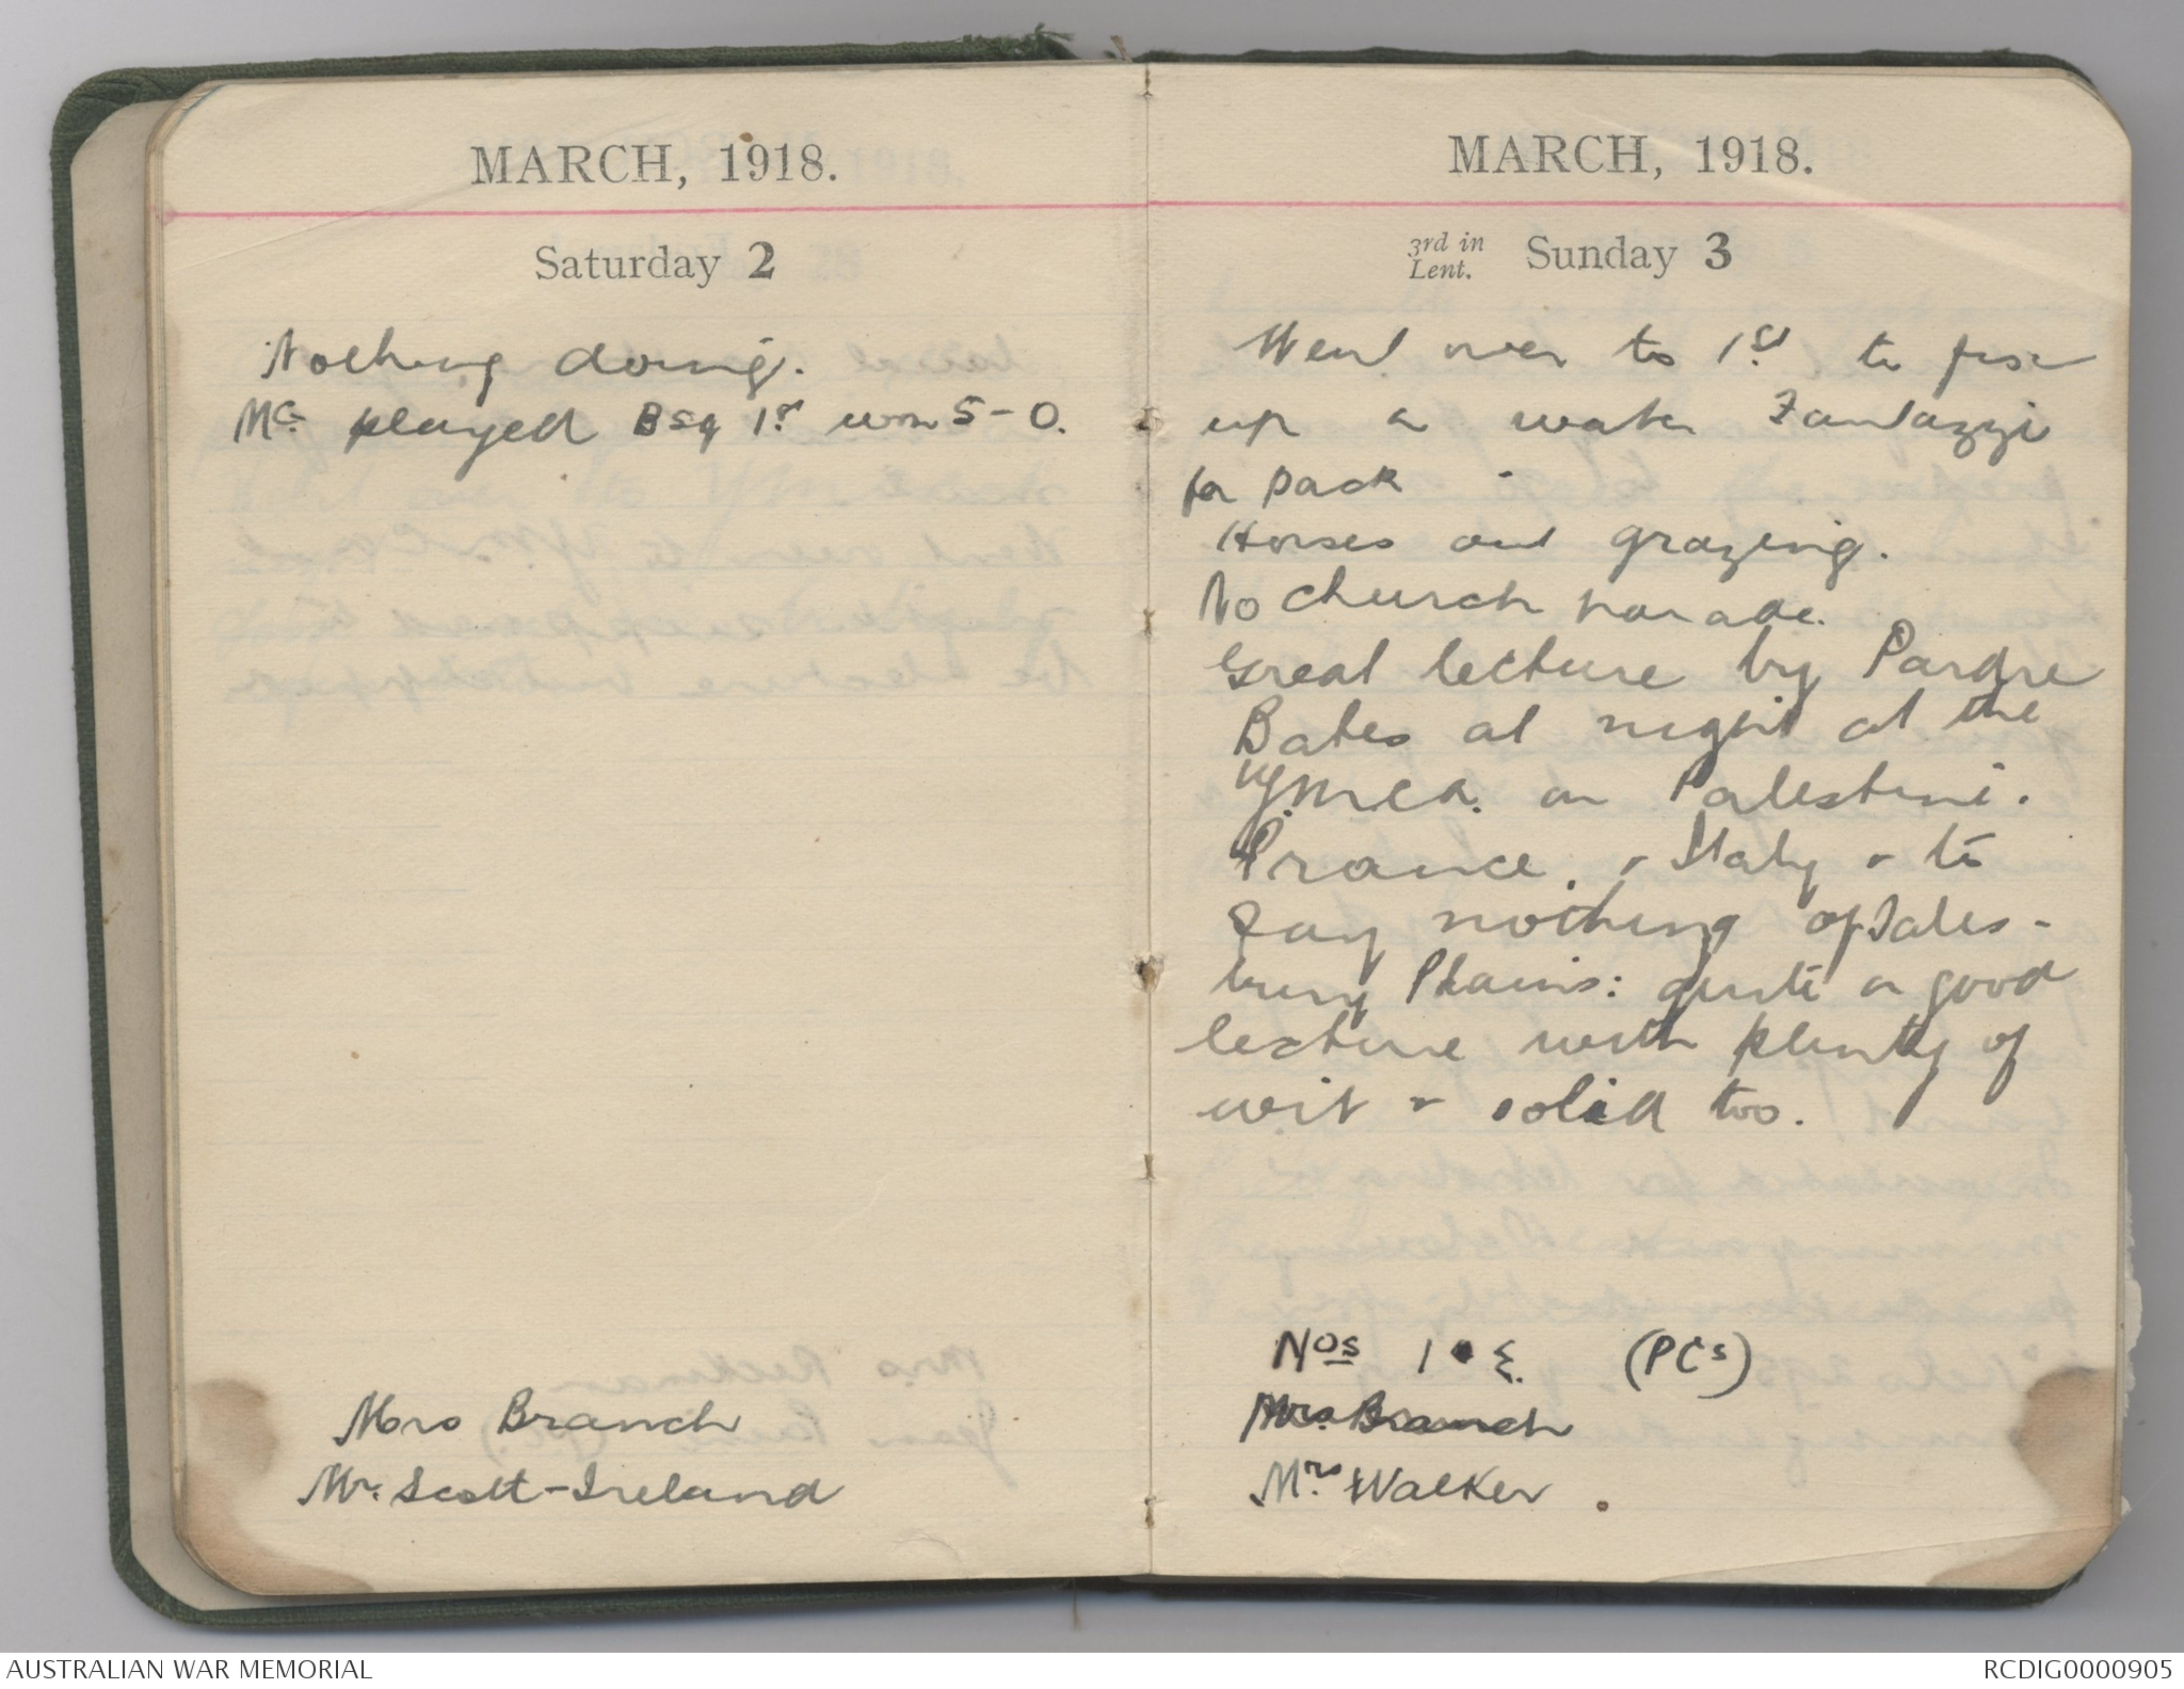 MARCH, 1918.
Saturday 2
Nothing doing.
Mc. played BSq 1st won 5-0.
Mrs Branch
Mr. Scott-Ireland
MARCH, 1918.
3rd in Lent. Sunday 3
Went over to 1st to fix
up a water Fantazzi
for pack
Horses out grazing.
No church parade.
Great lecture by Pardre
Bates at night at the
Y.M.C.A. on Palestine.
France. & Italy & to
say nothing of Sales-
bury Plains: quite a good
lecture with plenty of
wit & solid too.
Nos 1 (PCs)
Mrs. Branch
Mrs Walker.
AUSTRALIAN WAR MEMORIAL
RCDIG0000905